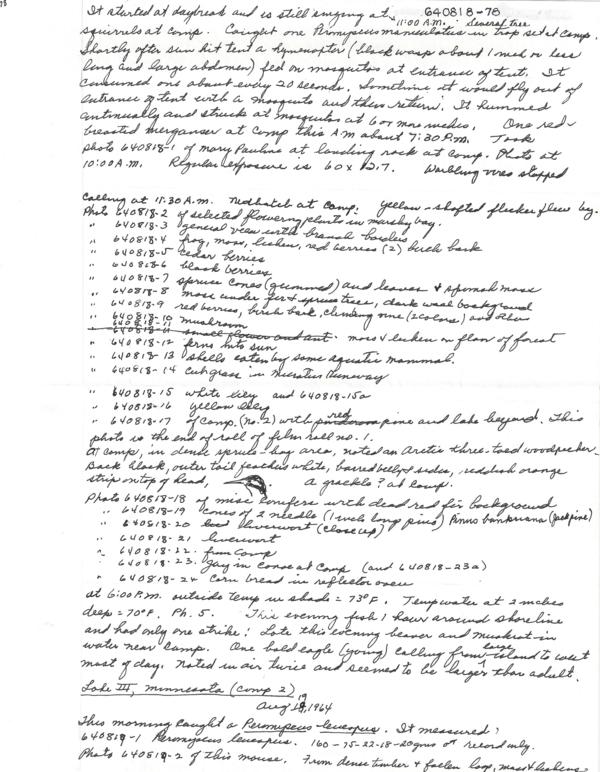 78
640818-78
It started at daybreak and is still singing at 11:00 A.M. Several tree
squirrels at camp. Caught one Peromyscus maniculatus in trap set at camp.
Shortly after sun hit tent a hymenopter (black wasp about 1 inch or less
long and large abdomen) fed on mosquitos at entrance of tent. It
consumed one about every 20 seconds. Sometime it would fly out of
entrance of tent with a mosquito and then return. It hummed
continually and struck at mosquitos at 6 or more inches. One red-
breasted merganser at camp this A.M about 7:30 P.M. Took
photo 640818-1 of Mary Pauline at landing rock at camp. Photo at
10:00 A.M. Regular exposure is 60 x 12.7. Warbling vireo stopped
calling at 11:30 A.M. Nuthatch at camp. Yellow-shafted flicker flew by.
Photo 640818-2 of selected flowering plants in marshy bay.
" 640818-3 general view with branch borders
" 640818-4 frog, moss, lichen, red berries (2) birch bark
" 640818-5 cedar berries
" 640818-6 black berries
" 640818-7 spruce cones (gummed) and leaves & sphagnum moss
" 640818-8 moss under fir & spruce trees, dark wash background
" 640818-9 red berries, birch bark, climbing vine (2 colors) and other
" 640818-10 mushroom
" 640818-11 small flower and ant. moss & lichen on floor of forest
" 640818-12 ferns into sun
" 640818-13 shells eaten by some aquatic mammal.
" 640818-14 cut grass in Microtus runway
" 640818-15 white lily and 640818-15a
" 640818-16 yellow lily
" 640818-17 of camp. (No. 2) with red pine and lake beyond. This
photo is the end of roll of film roll no. 1.
At camp, in dense spruce-bog area, noted an Arctic three-toed woodpecker.
Back black, outer tail feathers white, barred belly & sides, reddish orange
strip on top of head, A grackle? at camp.
Photo 640818-18 of misc conifers with dead red fir background
" 640818-19 cones of 2 needle (1 inch long pins) Pinus banksiana (Jack pine)
" 640818-20 liverwort (close up)
" 640818-21 liverwort
" 640818-22. from camp
" 640818-23. Guy in canoe at camp (and 640818-23a)
" 640818-24 corn bread in reflector oven
At 6:00 P.M. outside temp in shade = 73°F. Temp water at 2 inches
deep = 70°F. Ph. 5. This evening fish 1 hour around shoreline
and had only one strike! Late this evening beaver and muskrat in
water near camp. One bald eagle (young) calling from large island to west
most of day. Noted in air twice and seemed to be larger than adult.
Lake III, Minnesota (Camp 2)
Aug 19, 1964
This morning caught a Peromyscus leucopus. It measured;
640819-1 Peromyscus leucopus. 160-75-22-18-20gms ♂ record only.
Photo 640819-2 of this mouse. From dense timber & fallen log, moss & lichens